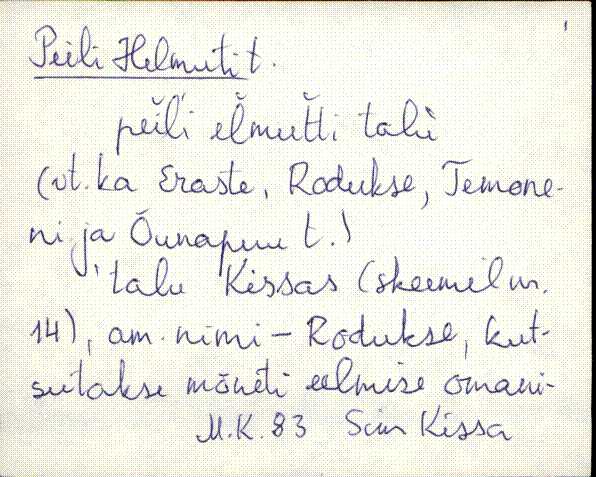 1
Peili Helmuti t.
peiľĭ eľmut̆t̆i talu̇
(vt. ka Eraste, Rodukse, Temone-
ni ja Õunapuu t.)
'talu Kissas (skeemil nr.
14), am. nimi - Rodukse, kut-
sutakse mõneti eelmise omani-
M.K. 83 Sim Kissa